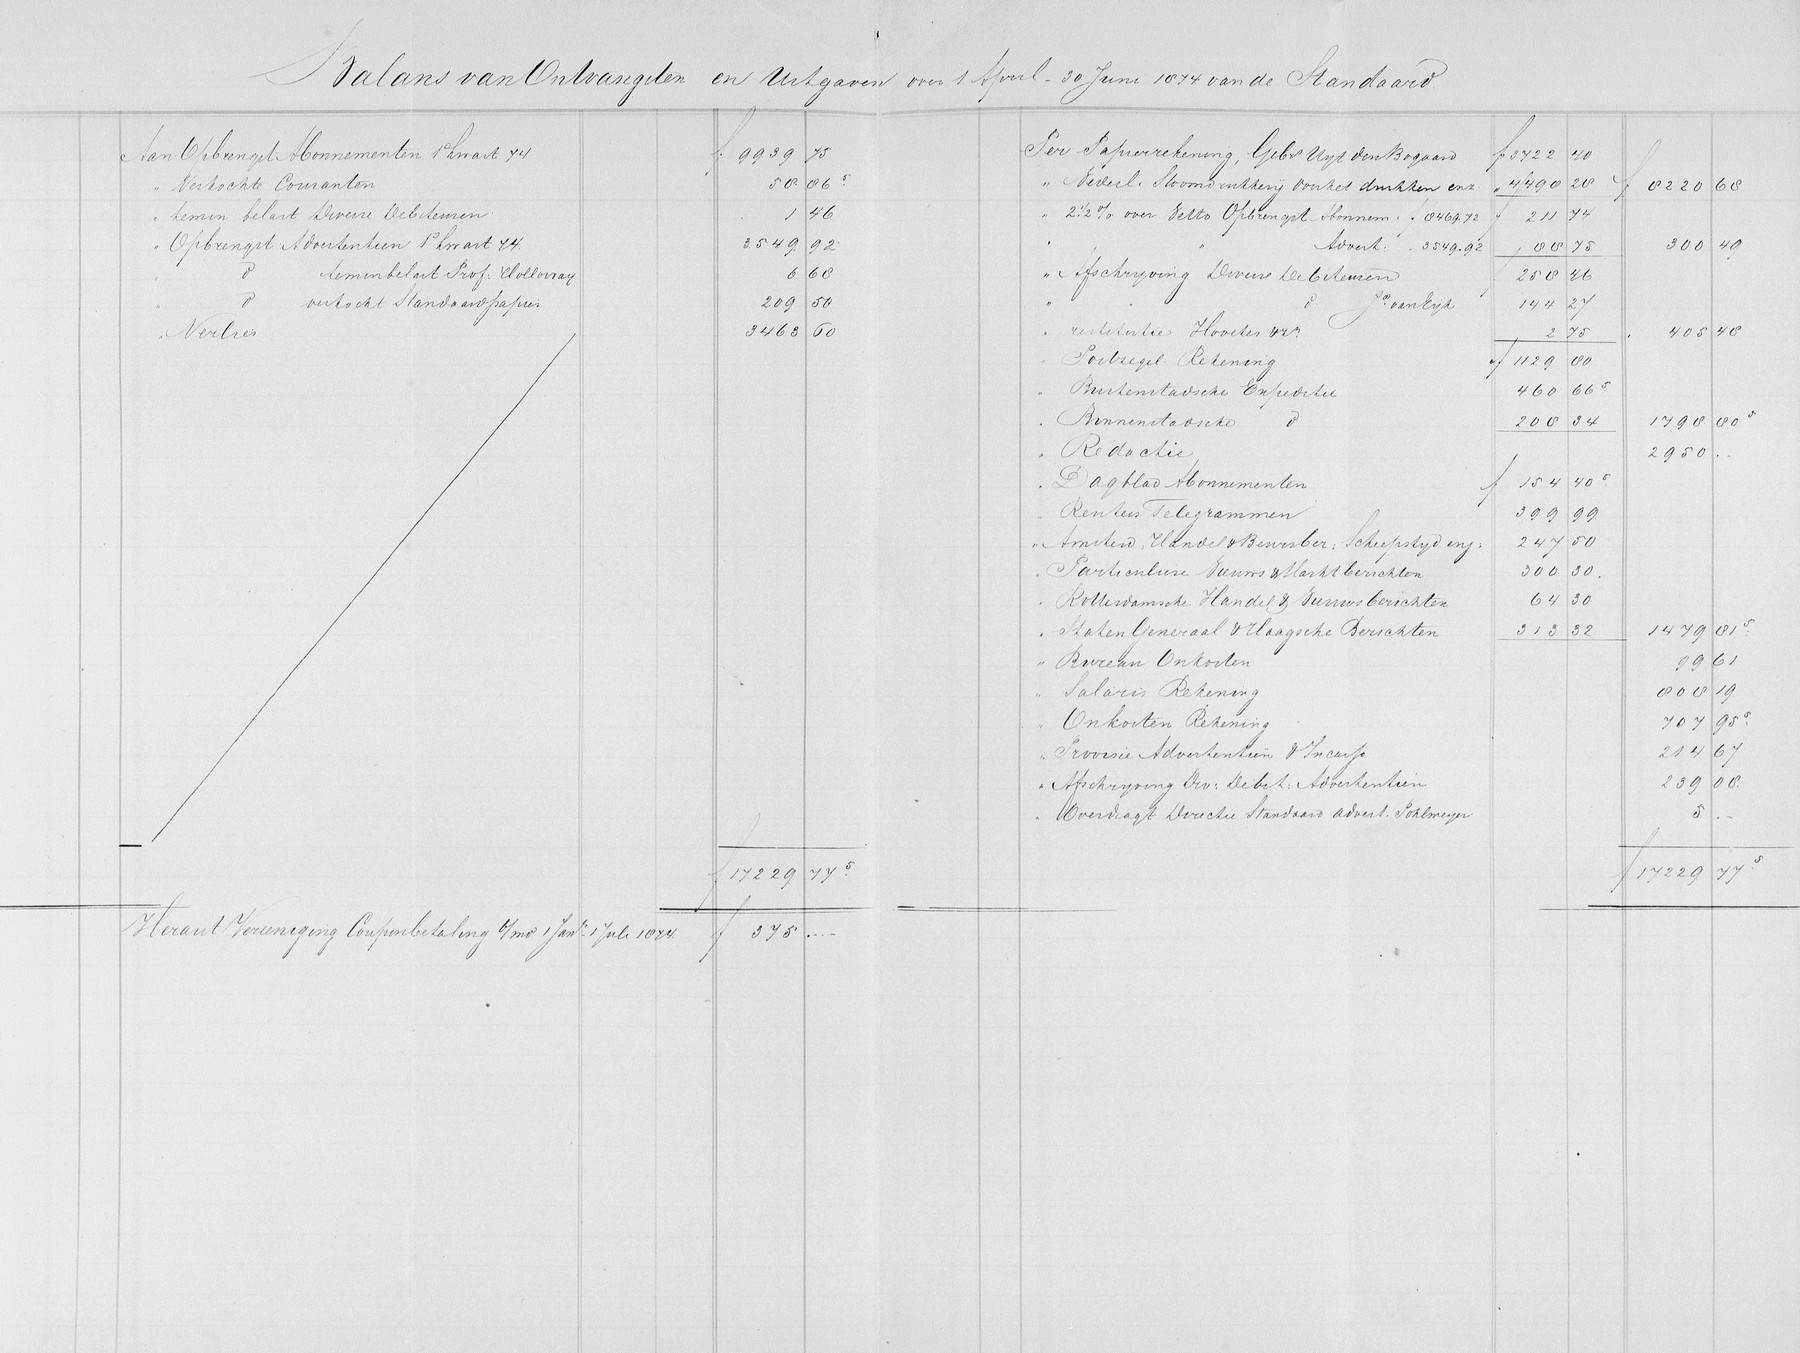 Balans van Ontvangsten en Uitgaven over 1 April - 30 Juni 1874 van de Standaard
Aan Opbrengst Abonnementen 1e Kwart 74 f 9939 75
" Verkochte Couranten 58 86 5
" temin belast Diverse Debiteuren 1 46
" Opbrengst Advertentien 1e Kwart 74. 3549 92
" do temin belast Prof. Holloway 6 68
" do verkocht Standaardpapier 209 50
" Verlies 3463 60
f 17229 77 5
Heraut Vereeniging Couponbetaling p/mo 1 Jan - 1 Juli 1874 f 375 . --
Per Papierrekening, Gebrs Uyt den Bogaard f 3722 40
" Nederl. Stoomdrukkerij voor het drukken enz " 4498 28 f 8220 68
" 2 1/2 % over Netto Opbrengst Abonnem. f 8469.72 f 211 74
" " Advert: . 3549.92 " 88 75 300 49
" Afschryving Diverse Debiteuren f 258 46
" " do Jb van Eyk 144 27
" restitutie 2 75 . 405 48
" Postzegel Rekening f 1129 80
" Buitenstadsche Expeditie 460 66 5
" Binnenstadsche do 208 34 1798 80 5
" Redactie 2950 . -
" Dagblad Abonnementen f 154 40 5
" Reuters Telegrammen 399 99
" Amsterd. Handel & Beursber: Scheepstyd enz: 247 50
" Particuliere Nieuws & Marktberichten 300 30.
" Rotterdamsche Handel & Nieuwsberichten 64 30
" Staten Generaal & Haagsche Berichten 313 32 1479 81 5
" Bureau Onkosten 99 61
" Salaris Rekening 808 19
" Onkosten Rekening 707 95 5
" Provisie Advertentien & Incasso 214 67
" Afschryving Div: Debit: Advertentien 239 08
" Overdragt Directie Standaard advert. Pohlmeyer 5 . -
f 17229 77 5